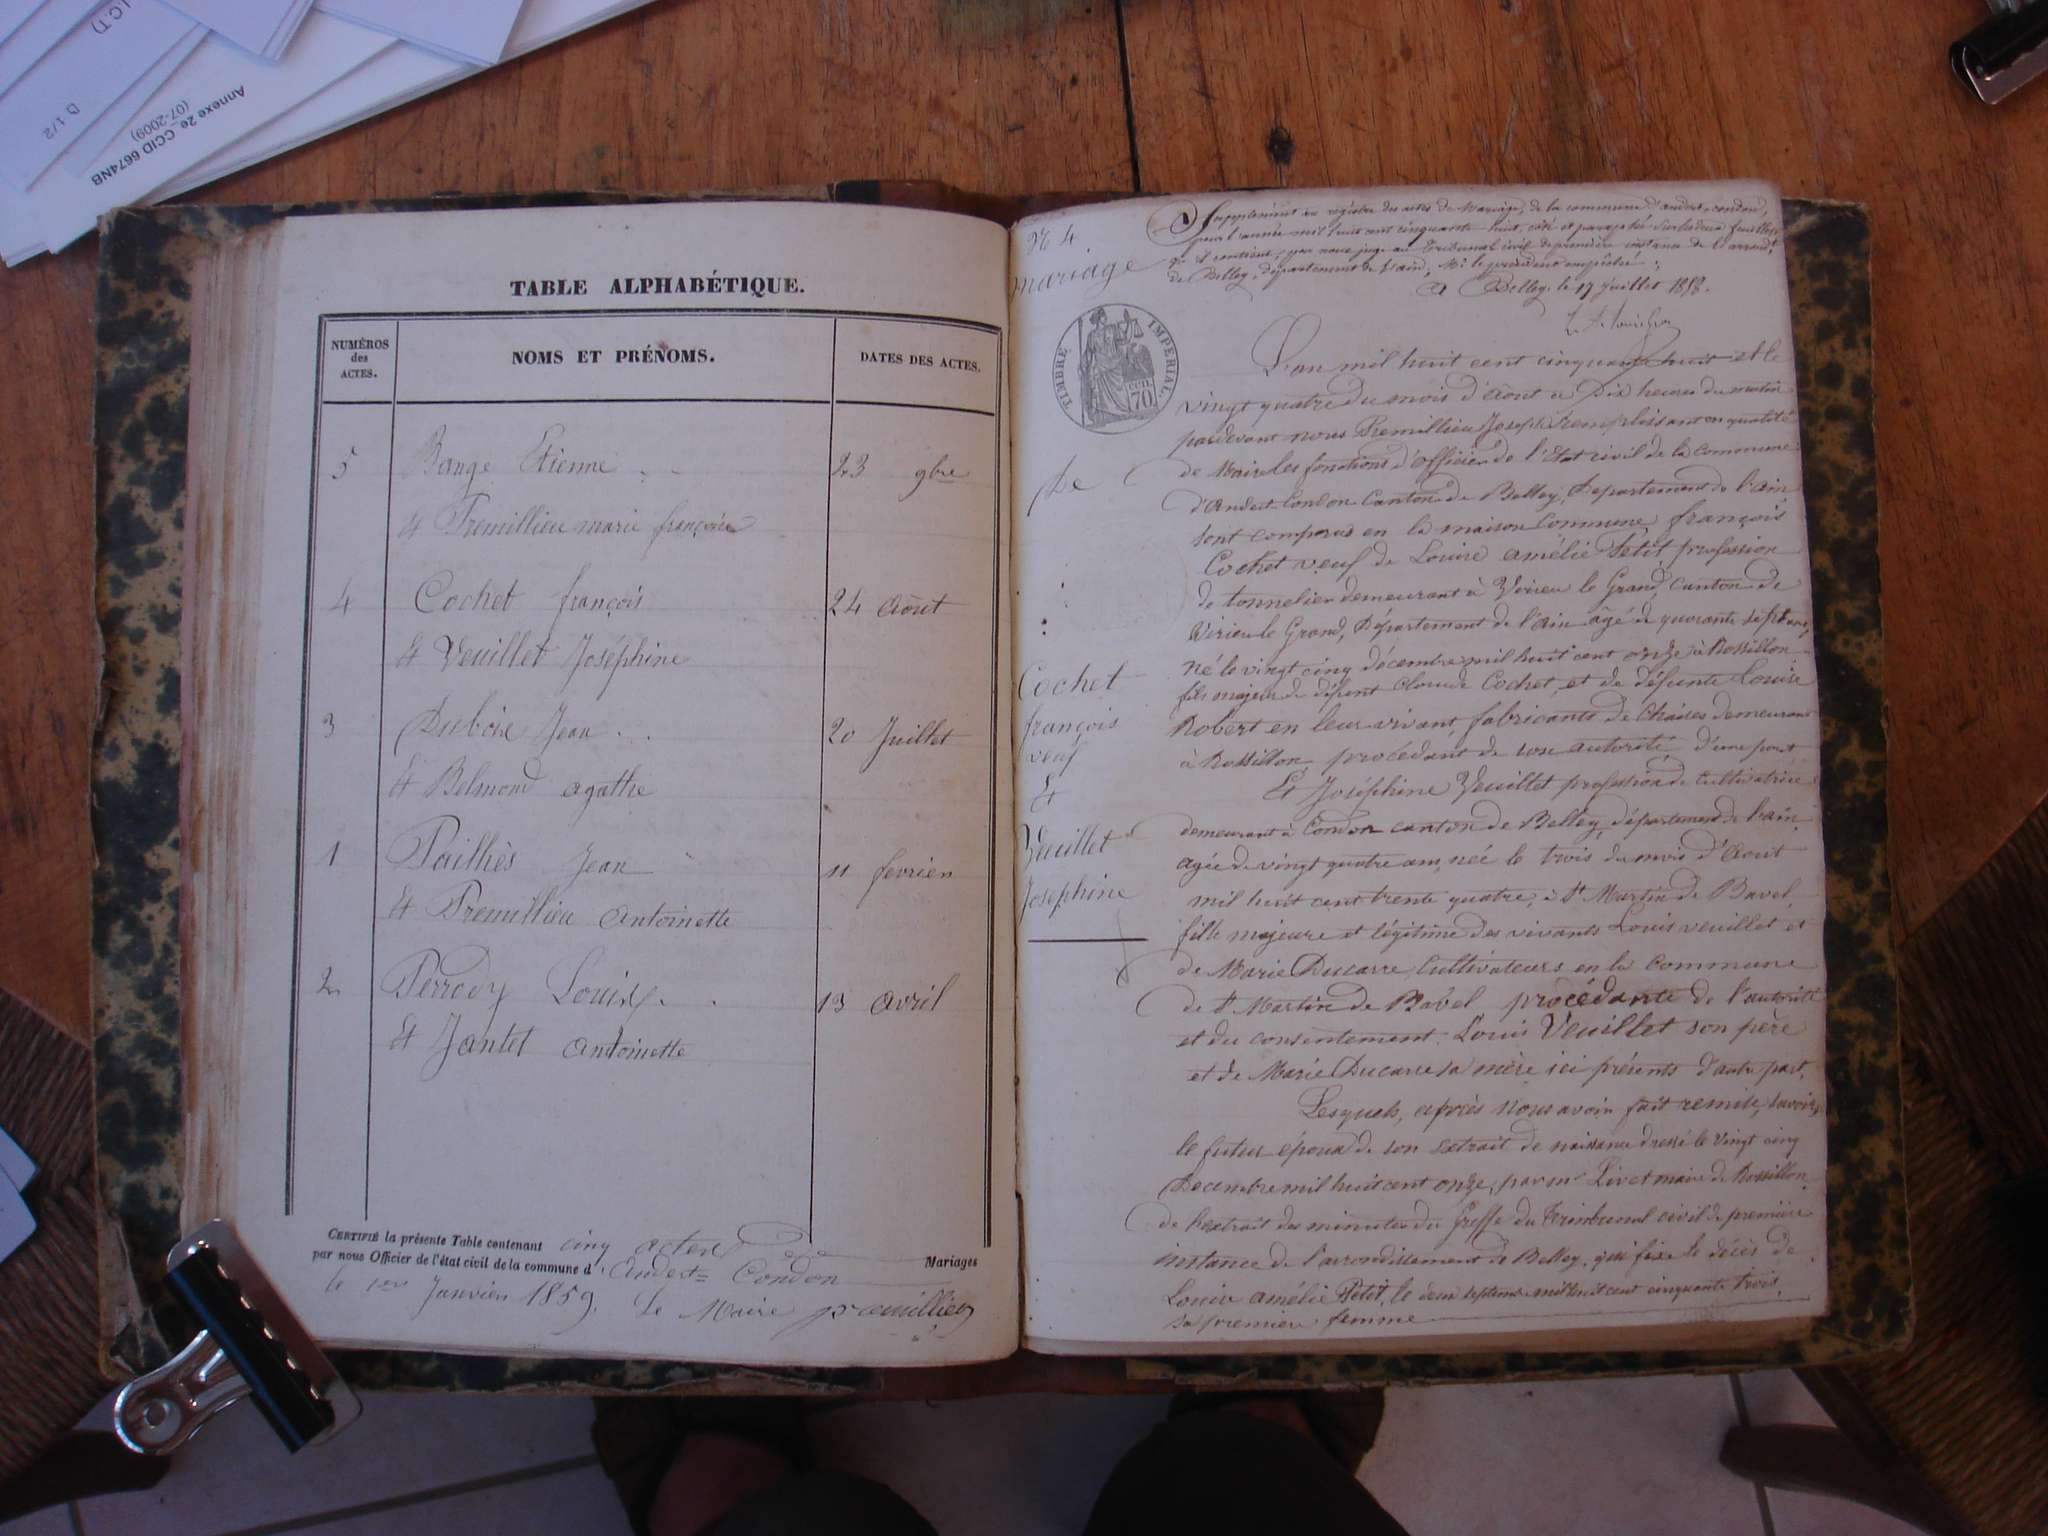 I.C.T)
D 1/2
(07-2009)
Annexe 2e_CCID 6674NB
TABLE ALPHABÉTIQUE.
NUMÉROS des ACTES.
NOMS ET PRÉNOMS.
DATES DES ACTES.
5 Bange Etienne 23 9bre
& Premillieu marie françoise
4 Cochet françois 24 Août
& Veuillet Joséphine
3 Dubois Jean 20 Juillet
& Belmond agathe
1 Pailhès Jean 11 fevrier
& Premillieu Antoinette
2 Perrody Louis 13 avril
& Jantet Antoinette
CERTIFIÉ la présente Table contenant cinq actes
par nous Officier de l'état civil de la commune d'Andert-Condon Mariages
le 1er Janvier 1859. Le Maire premillieu
N° 4
mariage
De
Cochet
françois
veuf
&
Veuillet
Josephine
Supplément au régistre des actes de Mariage, de la commune d'andert-condon,
pour l'année mil huit cent cinquante huit, côté et paraphé sur les deux feuillets
qu'il contient, par nous juge au Tribunal civil de première instance de l'arrondt
de Belley, département de l'ain, Mr le président empêché.
A Belley, le 17 Juillet 1858.
TIMBRE IMPERIAL
70
L'an mil huit cent cinquante huit et le
vingt quatre du mois d'Août à Dix heures du matin
pardevant nous Premillieu Joseph remplissant en qualité
de Maire les fonctions d'officier de l'Etat civil de la commune
d'Andert-Condon Canton de Belley, Département de l'ain
sont comparus en la maison commune françois
Cochet veuf de Louise amélie Petit profession
de tonnelier demeurant à Virieu le Grand, canton de
Virieu le Grand, Département de l'Ain âgé de quarante sept ans,
né le vingt cinq décembre mil huit cent onze à Rossillon
fils majeur de défunt Claude Cochet et de défunte Louise
Robert en leur vivant, fabricants de Chaises demeurant
à Rossillon, procédant de son autorité d'une part
Et Joséphine Veuillet profession de Cultivatrice
demeurant à Condon canton de Belley, département de l'ain,
agée de vingt quatre ans, née le trois du mois d'Août
mil huit cent trente quatre, à St Martin de Bavel,
fille majeure et légitime des vivants Louis veuillet et
de Marie Ducarre, Cultivateurs en la commune
de St Martin de Bavel procédante de l'autorité
et du consentement Louis Veuillet son père
et de Marie Ducarre sa mère ici présents d'autre part.
Lesquels, après nous avoir fait remise, savoir,
le futur époux de son extrait de naissance dressé le vingt cinq
Decembre mil huit cent onze, par mr Livet maire de Rossillon
de l'extrait des minutes du Greffe du Trimbunal civil de première
instance de l'arrondissement de Belley, qui fixe le décès de
Louise amélie Petit, le deux septembre mil huit cent cinquante trois,
sa premiere femme